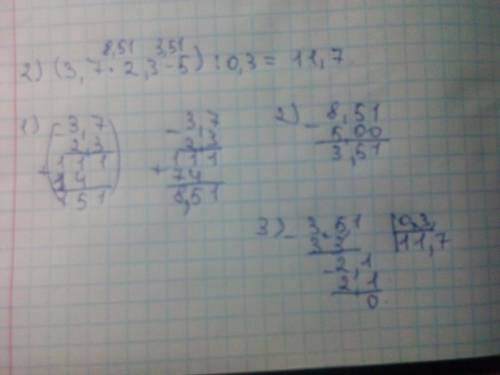 8,51 3,51
2) (3,7 · 2,3 - 5) : 0,3 = 11,7
1) 3,7 3,7 2) - 8,51
2,3 2,3 5,00
+ 111 + 111 3,51
74 74
851 8,51
3) - 3,5,1 0,3
3 3 11,7
- 2,1
2,1
0